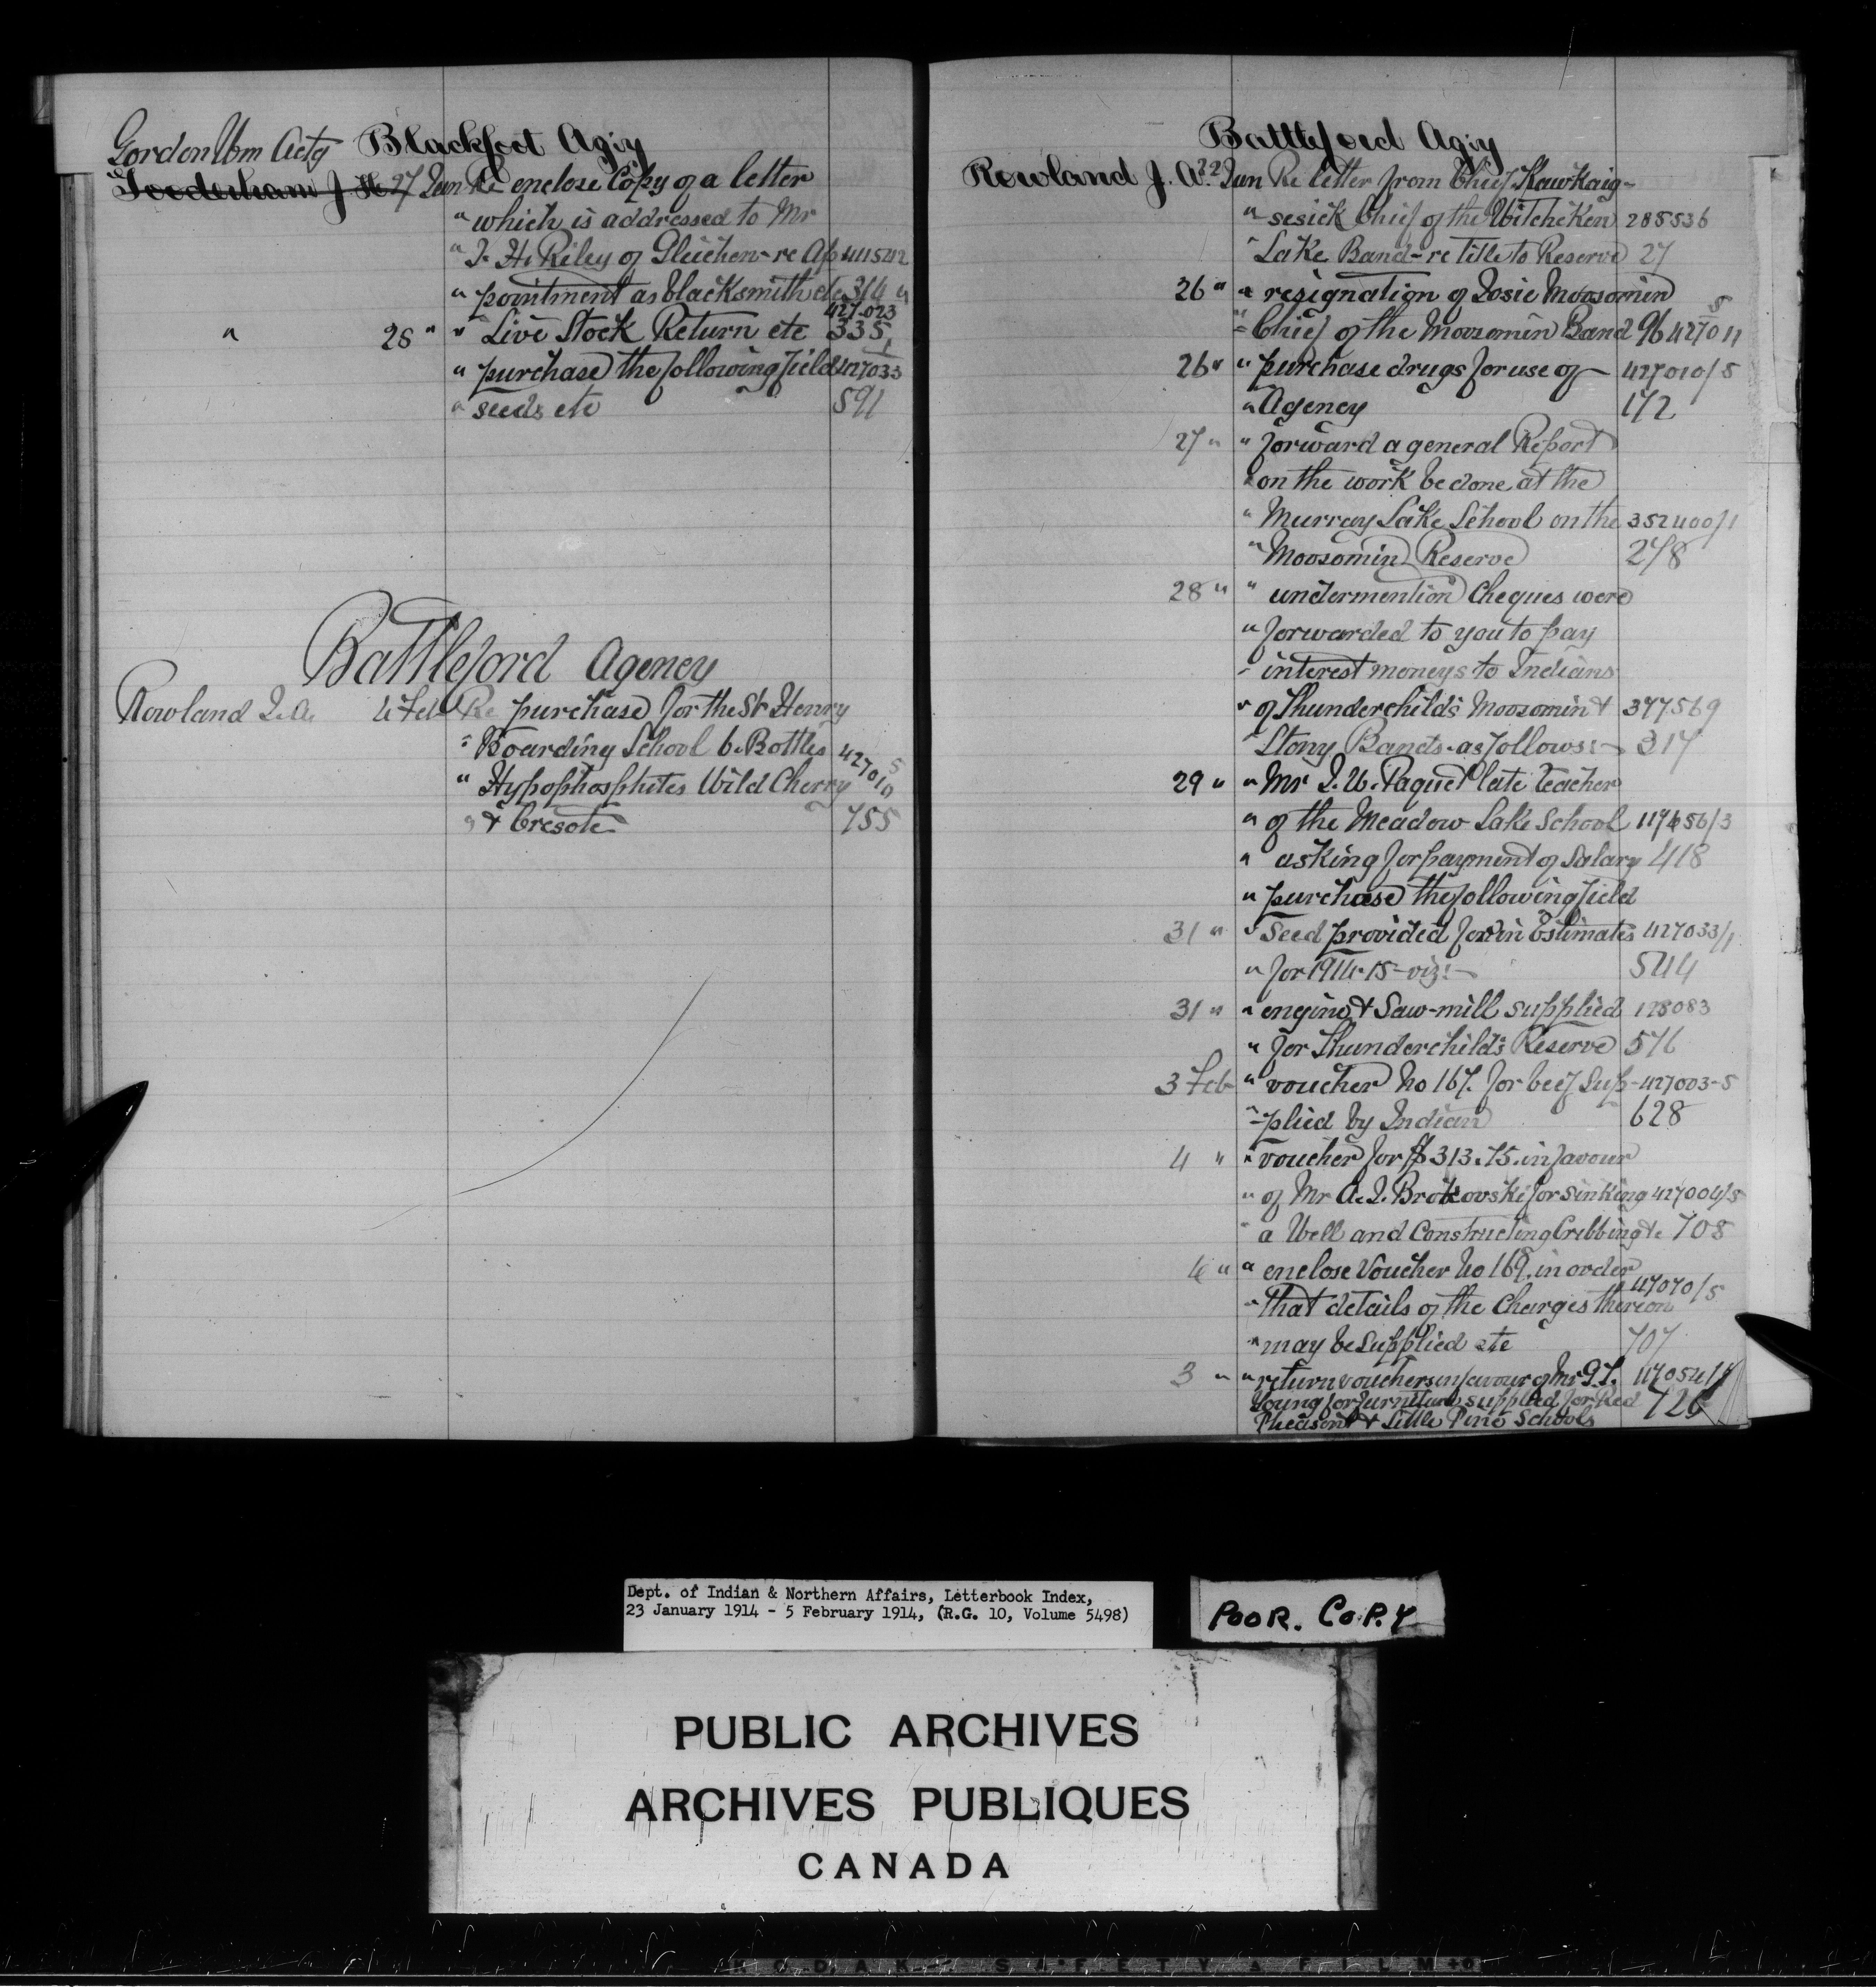 Blackfoot Agiy
Gordon Wm Actg
Gooderham J. H. 27 Jan Re enclose Copy of a letter
" which is addressed to Mr
" J. H. Riley of Gleichen - re Ap 411542
" pointment as blacksmith etc 314 "
427-023
" 28 " " Live Stock Return etc 335
" purchase the following field 427033 1
" seeds etc 591
Battleford Agency
Rowland J. A. 4 Feb Re purchase for the St Henry
" Boarding School 6 Bottles 427010 5
" Hypophosphites Wild Cherry
" & Cresote 755
Battleford Agiy
Rowland J. A. 22 Jan Re letter from Chief Kawkaig-
" sesick Chief of the Witcheken 285536
" Lake Band - re title to Reserve 27
26 " " resignation of Josie Moosomin
" Chief of the Moosomin Band 96 427011 8
26 " " purchase drugs for use of - 427010/5
" Agency 172
27 " " forward a general Report
" on the work be done at the
" Murray Lake School on the 352400/1
" Moosomin Reserve 278
28 " " undermention Cheques were
" forwarded to you to pay
" interest moneys to Indians
" of Thunderchild's Moosomin & 377569
" Stony Bands - as follows :- 317
29 " " Mr J. W. Paquet late teacher
" of the Meadow Lake School 119656/3
" asking for payment of Salary 418
" purchase the following field
31 " " Seed provided for in Estimates 427033/1
" for 1914-15 - viz :- 544
31 " " engine & Saw-mill supplied 198083
" for Thunderchild's Reserve 576
3 Feb " voucher No 167. for beef Sup- 427003-5
" plied by Indian 628
4 " " voucher for $ 313.75. in favour
" of Mr A. J. Brokovski for sinking 427004/5
" a Well and Constructing Cribbing & 708
4 " " enclose Voucher No 169. in order
" That details of the Charges thereon 47070/5
" may be supplied etc 707
3 " " return vouchers in favour of Mr G. T.
Young for furniture supplied for Red 726
Pheasent & Little Pine Schools
Dept. of Indian & Northern Affairs, Letterbook Index,
23 January 1914 - 5 February 1914, (R.G. 10, Volume 5498)
POOR. COPY
PUBLIC ARCHIVES
ARCHIVES PUBLIQUES
CANADA
KODAK SAFETY FILM